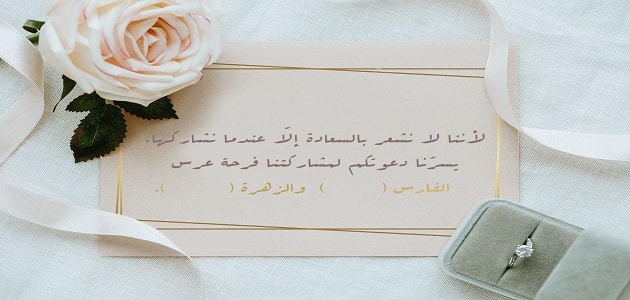 لأننا لا نشعر بالسعادة إلّا عندما نشاركها،
يسرّنا دعوتكم لمشاركتنا فرحة عرس
الفارس (          ) والزهرة (          ).